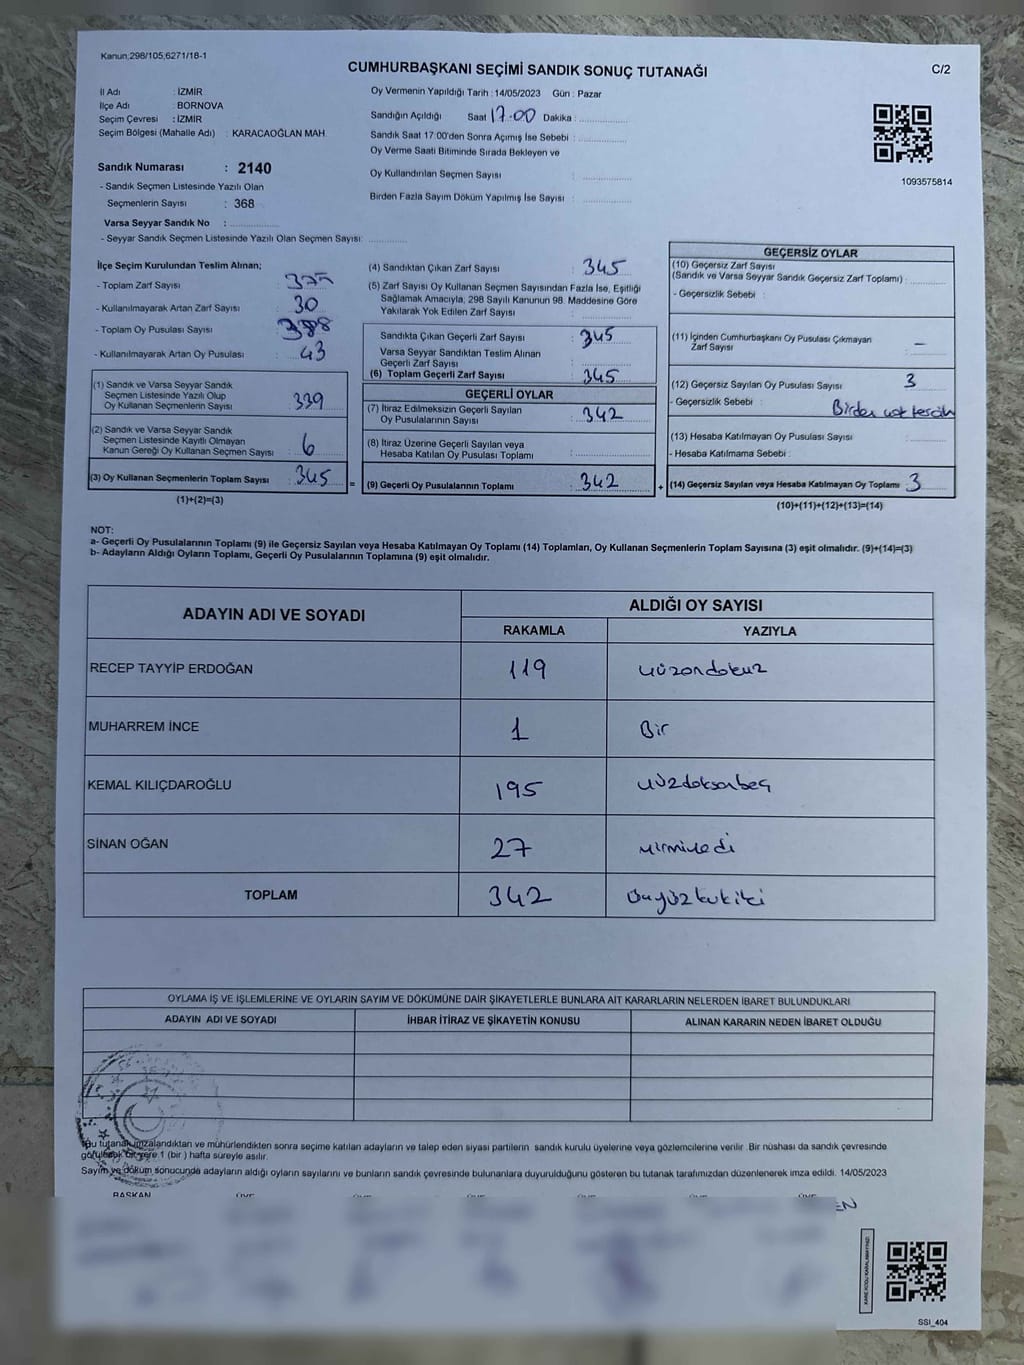 Kanun,298/105,6271/18-1
CUMHURBAŞKANI SEÇİMİ SANDIK SONUÇ TUTANAĞI
C/2
İl Adı : İZMİR
İlçe Adı : BORNOVA
Seçim Çevresi : İZMİR
Seçim Bölgesi (Mahalle Adı) : KARACAOĞLAN MAH.
Sandık Numarası : 2140
- Sandık Seçmen Listesinde Yazılı Olan
Seçmenlerin Sayısı : 368
Varsa Seyyar Sandık No :
- Seyyar Sandık Seçmen Listesinde Yazılı Olan Seçmen Sayısı:
Oy Vermenin Yapıldığı Tarih :14/05/2023 Gün : Pazar
Sandığın Açıldığı Saat 17.00 Dakika :
Sandık Saat 17:00'den Sonra Açımış İse Sebebi :
Oy Verme Saati Bitiminde Sırada Bekleyen ve
Oy Kullandırılan Seçmen Sayısı :
Birden Fazla Sayım Döküm Yapılmış İse Sayısı :
1093575814
İlçe Seçim Kurulundan Teslim Alınan;
- Toplam Zarf Sayısı : 375
- Kullanılmayarak Artan Zarf Sayısı : 30
- Toplam Oy Pusulası Sayısı : 388
- Kullanılmayarak Artan Oy Pusulası : 43
(1) Sandık ve Varsa Seyyar Sandık
Seçmen Listesinde Yazılı Olup
Oy Kullanan Seçmenlerin Sayısı : 339
(2) Sandık ve Varsa Seyyar Sandık
Seçmen Listesinde Kayıtlı Olmayan
Kanun Gereği Oy Kullanan Seçmen Sayısı : 6
(3) Oy Kullanan Seçmenlerin Toplam Sayısı : 345
(1)+(2)=(3)
=
(4) Sandıktan Çıkan Zarf Sayısı : 345
(5) Zarf Sayısı Oy Kullanan Seçmen Sayısından Fazla İse, Eşitliği
Sağlamak Amacıyla, 298 Sayılı Kanunun 98. Maddesine Göre
Yakılarak Yok Edilen Zarf Sayısı :
Sandıkta Çıkan Geçerli Zarf Sayısı : 345
Varsa Seyyar Sandıktan Teslim Alınan
Geçerli Zarf Sayısı :
(6) Toplam Geçerli Zarf Sayısı : 345
GEÇERLİ OYLAR
(7) İtiraz Edilmeksizin Geçerli Sayılan
Oy Pusulalarının Sayısı : 342
(8) İtiraz Üzerine Geçerli Sayılan veya
Hesaba Katılan Oy Pusulası Toplamı :
(9) Geçerli Oy Pusulalarının Toplamı : 342
+
GEÇERSİZ OYLAR
(10) Geçersiz Zarf Sayısı
(Sandık ve Varsa Seyyar Sandık Geçersiz Zarf Toplamı) :
- Geçersizlik Sebebi :
(11) İçinden Cumhurbaşkanı Oy Pusulası Çıkmayan
Zarf Sayısı : –
(12) Geçersiz Sayılan Oy Pusulası Sayısı : 3
- Geçersizlik Sebebi : Birden çok tercih
(13) Hesaba Katılmayan Oy Pusulası Sayısı :
- Hesaba Katılmama Sebebi :
(14) Geçersiz Sayılan veya Hesaba Katılmayan Oy Toplamı : 3
(10)+(11)+(12)+(13)=(14)
NOT:
a- Geçerli Oy Pusulalarının Toplamı (9) ile Geçersiz Sayılan veya Hesaba Katılmayan Oy Toplamı (14) Toplamları, Oy Kullanan Seçmenlerin Toplam Sayısına (3) eşit olmalıdır. (9)+(14)=(3)
b- Adayların Aldığı Oyların Toplamı, Geçerli Oy Pusulalarının Toplamına (9) eşit olmalıdır.
ADAYIN ADI VE SOYADI
ALDIĞI OY SAYISI
RAKAMLA YAZIYLA
RECEP TAYYİP ERDOĞAN 119 yüzondokuz
MUHARREM İNCE 1 Bir
KEMAL KILIÇDAROĞLU 195 yüzdoksanbeş
SİNAN OĞAN 27 yirmiyedi
TOPLAM 342 üçyüzkırkiki
OYLAMA İŞ VE İŞLEMLERİNE VE OYLARIN SAYIM VE DÖKÜMÜNE DAİR ŞİKAYETLERLE BUNLARA AİT KARARLARIN NELERDEN İBARET BULUNDUKLARI
ADAYIN ADI VE SOYADI İHBAR İTİRAZ VE ŞİKAYETİN KONUSU ALINAN KARARIN NEDEN İBARET OLDUĞU
Bu tutanak imzalandıktan ve mühürlendikten sonra seçime katılan adayların ve talep eden siyasi partilerin sandık kurulu üyelerine veya gözlemcilerine verilir. Bir nüshası da sandık çevresinde
görülecek bir yere 1 (bir) hafta süreyle asılır.
Sayım ve döküm sonucunda adayların aldığı oyların sayılarını ve bunların sandık çevresinde bulunanlara duyurulduğunu gösteren bu tutanak tarafımızdan düzenlenerek imza edildi. 14/05/2023
BAŞKAN ÜYE ÜYE ÜYE ÜYE ÜYE ÜYE
SSİ_404